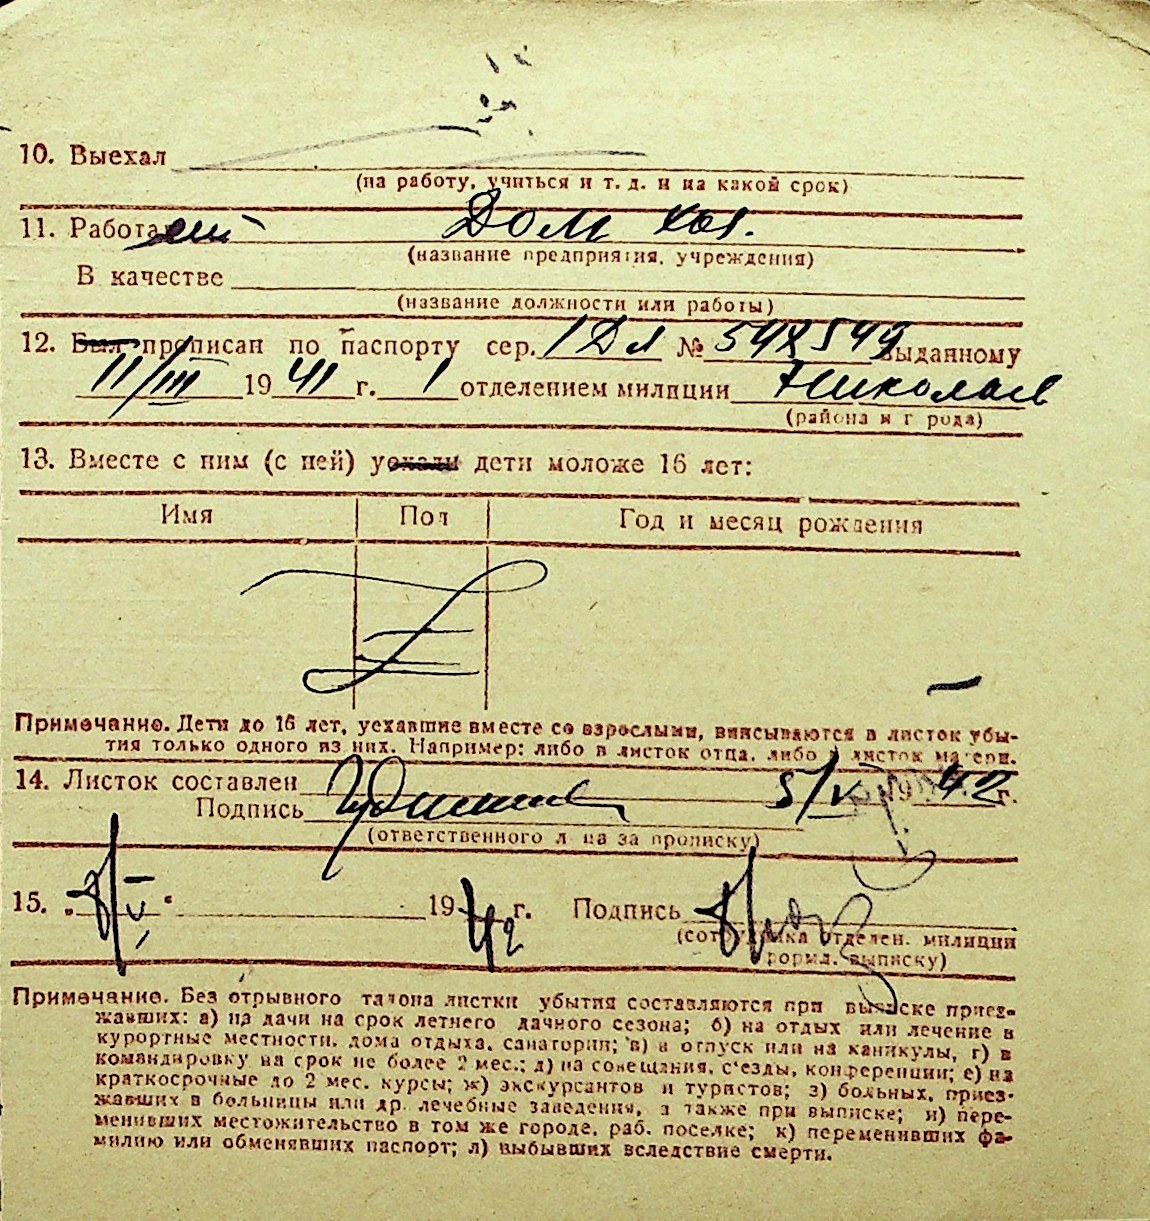 10. Выехал
(на работу, учиться и т. д. и на какой срок)
11. Работает Дом хоз.
(название предприятия, учреждения)
В качестве
(название должности или работы)
12. Был прописан по паспорту сер. 1 Дл № 548549 выданному
11/III 1941 г. 1 отделением милиции Николаев
(района и города)
13. Вместе с ним (с ней) уехали дети моложе 16 лет:
Имя Пол Год и месяц рождения
Примечание. Дети до 16 лет, уехавшие вместе со взрослыми, вписываются в листок убы-
тия только одного из них. Например: либо в листок отца, либо в листок матери.
14. Листок составлен 5/V 1942 г.
Подпись
(ответственного лица за прописку)
15. „8/V“ 1942 г. Подпись
(сотрудника отделен. милиции
формл. выписку)
Примечание. Без отрывного талона листки убытия составляются при выписке приез-
жавших: а) на дачи на срок летнего дачного сезона; б) на отдых или лечение в
курортные местности, дома отдыха, санатории; в) в отпуск или на каникулы, г) в
командировку на срок не более 2 мес.; д) на совещания, с'езды, конференции; е) на
краткосрочные до 2 мес. курсы; ж) экскурсантов и туристов; з) больных, приез-
жавших в больницы или др. лечебные заведения, а также при выписке; и) пере-
менивших местожительство в том же городе, раб. поселке; к) переменивших фа-
милию или обменявших паспорт; л) выбывших вследствие смерти.